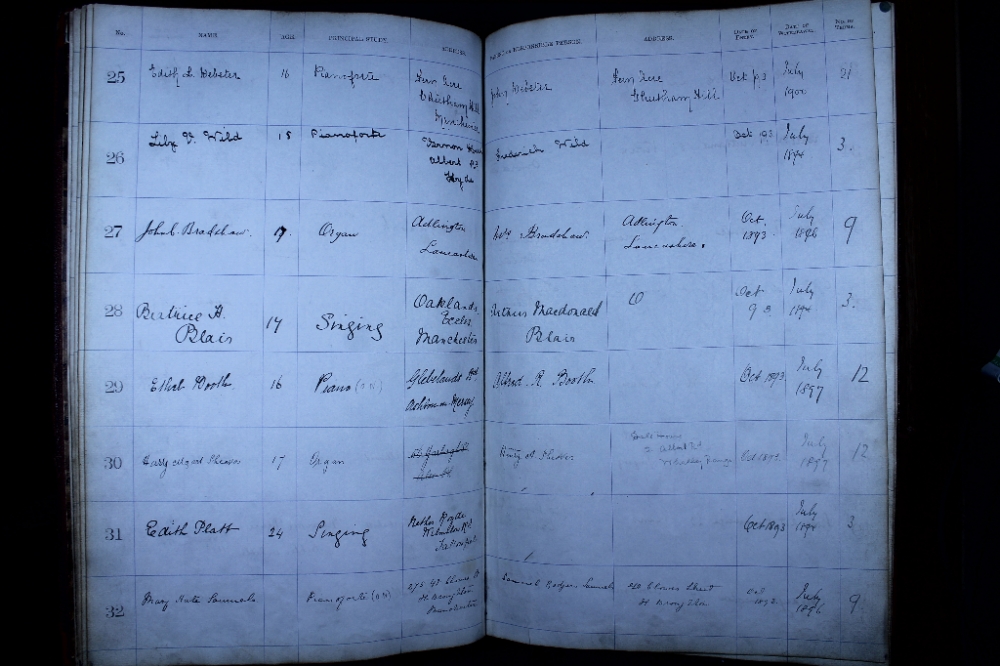 No. NAME. AGE. PRINCIPAL STUDY. ADDRESS. RESPONSIBLE PERSON. ADDRESS. DATE OF ENTRY. DATE OF WITHDRAWAL. NO. OF TERMS.
25 Edith L. Webster 16 Pianoforte John Webster Oct 93 July 1900 21
Cheetham Hill
Manchester
26 Lily V. Wild 15 Pianoforte Frederick Wild Oct 93 July 1894 3.
Albert Rd
Hyde
27 John C. Bradshaw. 17. Organ Adlington Wm Bradshaw. Adlington Oct 1893 July 1896 9
Lancashire Lancashire.
28 Beatrice H. Blair 17 Singing Oaklands, Macdonald Blair Oct 93 July 1894 3.
Eccles
Manchester
29 Ethel Booth 16 Piano Glebelands Rd Albert R. Booth Oct 1893 July 1897 12
Ashton on Mersey
30 17 Organ Oct 1893 July 1897 12
31 Edith Platt 24 Singing Oct 1893 July 1894 3
32 Mary Kate Samuels Pianoforte 275 Gt Clowes St Samuel Rodgers Samuels Clowes Street Oct 1893 July 1896 9
Hr Broughton Hr Broughton
Manchester